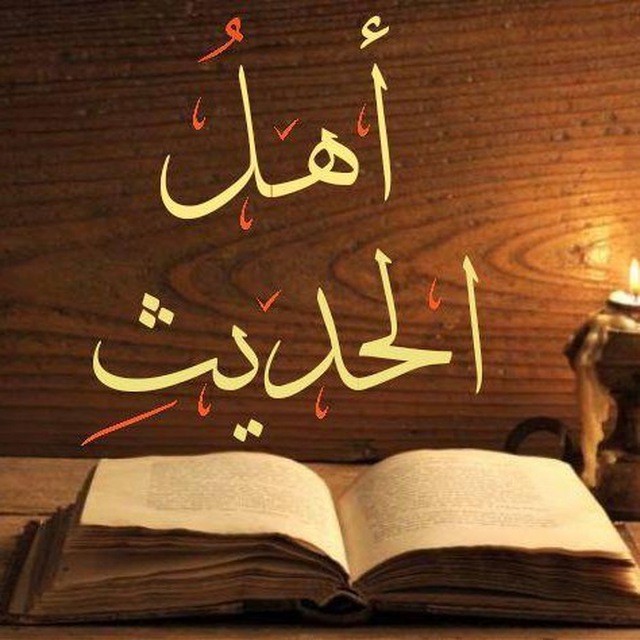 أهلُ
الحديثِ